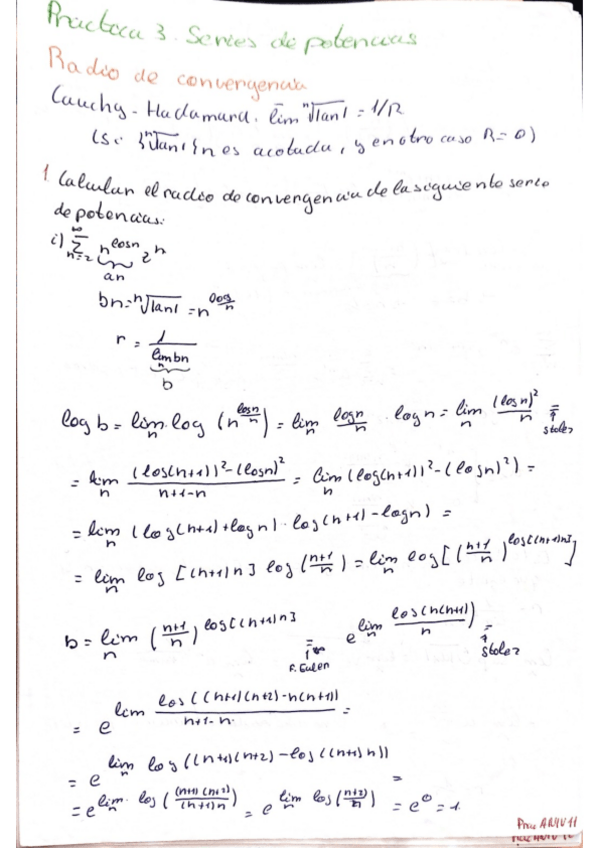 Práctica 3. Series de potencias
Radio de convergencia
Cauchy-Hadamard. lim ⁿ√|an| = 1/R
(Si {ⁿ√|an|} n es acotada, y en otro caso R=0)
1 Calcular el radio de convergencia de la siguiente serie
de potencias:
i) ∞ Σ n=2 n^{log n} z^n
an
bn = ⁿ√|an| = n^{log/n}
r = 1 / lim bn
n
b
log b = lim n log (n^{log n/n}) = lim n log n/n · log n = lim n (log n)²/n =
↑
Stolez
= lim n ((log(n+1))²-(log n)²)/(n+1-n) = lim n (log(n+1))²-(log n)²) =
= lim n (log(n+1)+log n) · log(n+1)-log n) =
= lim n log [(n+1)n] log((n+1)/n) = lim n log[((n+1)/n)^{log[(n+1)n]}]
b = lim n ((n+1)/n)^{log[(n+1)n]} = e^{lim n log(n(n+1))/n)} =
↑ 1^∞
R. Euler
↑
Stolez
= e^{lim log((n+1)(n+2)-n(n+1))/(n+1-n)} =
= e^{lim n log((n+1)(n+2)-log((n+1)n))} =
= e^{lim n log((n+1)(n+2)/(n+1)n)} = e^{lim n log((n+2)/n)} = e⁰ = 1.